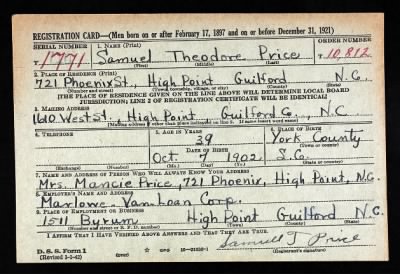 REGISTRATION CARD—(Men born on or after February 17, 1897 and on or before December 31, 1921)
SERIAL NUMBER 1. NAME (Print) ORDER NUMBER
T1771 Samuel Theodore Price T10,812
(First) (Middle) (Last)
2. PLACE OF RESIDENCE (Print)
721 Phoenix St. High Point Guilford N.C.
(Number and street) (Town, township, village, or city) (County) (State)
[THE PLACE OF RESIDENCE GIVEN ON THE LINE ABOVE WILL DETERMINE LOCAL BOARD
JURISDICTION; LINE 2 OF REGISTRATION CERTIFICATE WILL BE IDENTICAL]
3. MAILING ADDRESS
1610 West St., High Point, Guilford Co., N.C.
[Mailing address if other than place indicated on line 2. If same insert word same]
4. TELEPHONE 5. AGE IN YEARS 6. PLACE OF BIRTH
39 York County
DATE OF BIRTH (Town or county)
Oct. 7 1902 S.C.
(Exchange) (Number) (Mo.) (Day) (Yr.) (State or country)
7. NAME AND ADDRESS OF PERSON WHO WILL ALWAYS KNOW YOUR ADDRESS
Mrs. Mancie Price, 721 Phoenix, High Point, N.C.
8. EMPLOYER'S NAME AND ADDRESS
Marlowe-Van Loan Corp.
9. PLACE OF EMPLOYMENT OR BUSINESS
1511 Byrum High Point Guilford N.C.
(Number and street or R. F. D. number) (Town) (County) (State)
I AFFIRM THAT I HAVE VERIFIED ABOVE ANSWERS AND THAT THEY ARE TRUE.
D. S. S. Form 1
(Revised 4-1-42)
Samuel T. Price
(Registrant's signature)